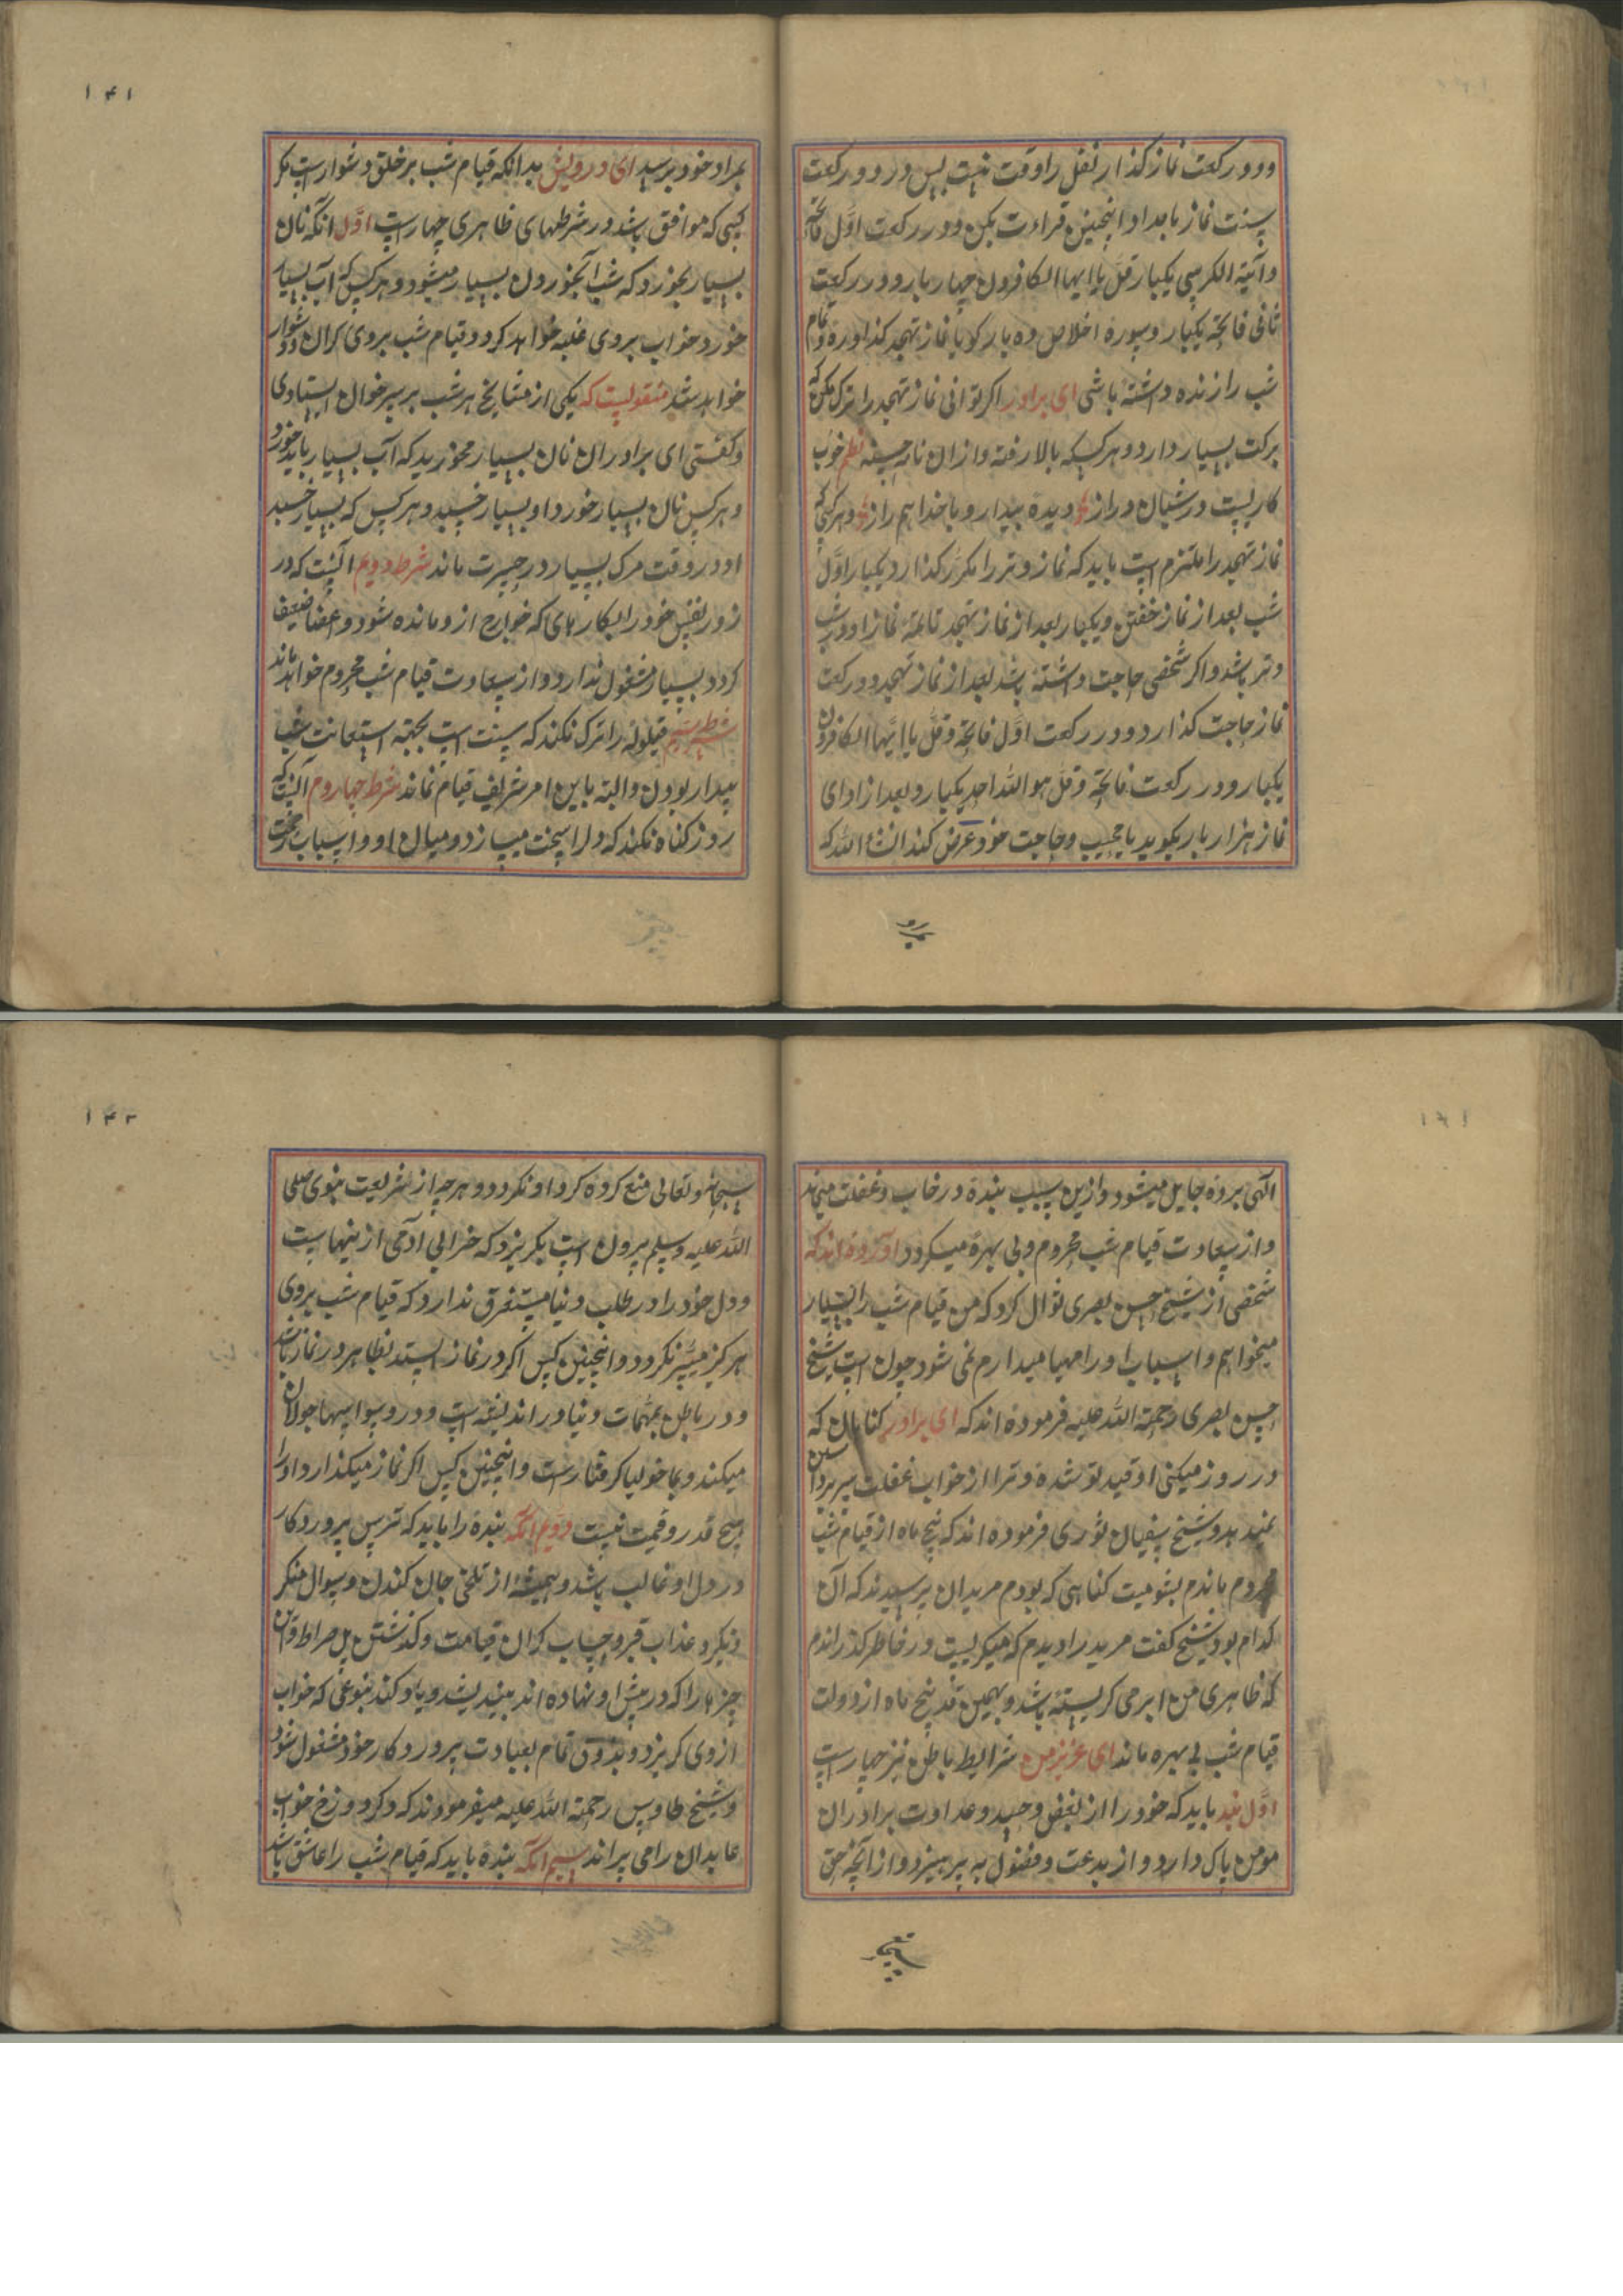 دوو رکعت نماز گذار نفل را وقت نیست پس در دو رکعت
سنت نماز بامداد اینچنین قراءت بکن ودر رکعت اول فاتحه
وآیة الکرسی یکبار قل یا ایها الکافرون چهار بار ودر رکعت
ثانی فاتحه یکبار وسوره اخلاص ده بار گویا نماز تهجد گذاورده وتمام
شب را زنده داشته باشی ای برادر اگر توانی نماز تهجد را ترک مکن که
برکت بسیار دارد وهر کسیکه بالا رفته وازان نماز نظم خوب
کاریست در شبان دراز دیده بیدار وبا خدا هم راز وهر کسی که
نماز تهجد را ملتزم است باید که نماز وتر را مکرر گذارد یکبار اول
شب بعد از نماز خفتن ویکبار بعد از نماز تهجد تا نماز او در شب
وتر باشد واگر شخصی حاجت داشته باشد بعد از نماز تهجد دو رکعت
نماز حاجت گذارد ودر رکعت اول فاتحه وقل یا ایها الکافرون
یکبار ودر رکعت فاتحه وقل هو الله احد یکبار وبعد از ادای
نماز هزار بار بگوید یا مجیب وحاجت خود عرض کند انشاء الله که
۱۴۱
بمراد خود برسد ای درویش بدانکه قیام شب بر خلق دشوارست مگر
کسی که موافق باشد در شرطهای ظاهری چهارست اول آنکه نان
بسیار نخورد که شب آبخوردن بسیار میشود وهر کس که آب بسیار
خورد خواب بروی غلبه خواهد کرد وقیام شب بروی گران ودشوار
خواهد شد منقولست که یکی از مشایخ هر شب بر سر خوان ایستادی
وگفتی ای برادران نان بسیار مخورید که آب بسیار باید خورد
وهر کس نان بسیار خورد او بسیار خسپد وهر کس که بسیار خسپد
او در وقت مرگ بسیار در حسرت ماند شرط دویم آنست که در
روز نفس خود را بکارهای که جوارح ازو مانده شود واعضا ضعیف
گردد بسیار مشغول ندارد واز سعادت قیام شب محروم خواهد ماند
شرط سیم قیلوله را ترک نکند که سنت است بجهة استعانت شب
بیدار بودن والبته باین امر شریف قیام نماند شرط چهاروم آنست که
روز گناه نکند که دل را سخت میسازد ومیان او واسباب رحمت
الهی پرده حایل میشود وازین سبب بنده در خاب وغفلت میماند
واز سعادت قیام شب محروم وبی بهره میگردد آورده اند که
شخصی از شیخ حسن بصری سوال کرد که من قیام شب را بسیار
میخواهم واسباب او را مهیا میدارم نمی شود چون است شیخ
حسن بصری رحمة الله علیه فرموده اند که ای برادر گناهان که
در روز میکنی او قید تو شده وترا از خواب غفلت سر برداشتن
نمیدهد وشیخ سفیان ثوری فرموده اند که پنج ماه از قیام شب
محروم ماندم بشومیت گناهی که بودم مریدان پرسیدند که آن
کدام بود شیخ گفت مرید را دیدم که میگریست در خاطر گذراندم
که ظاهری من ابرمی گریسته باشد وبهمین قدر پنج ماه از دولت
قیام شب بی بهره ماند ای عزیز من شرایط باطن نیز چهارست
اول بنده باید که خود را از بغض وحسد وعداوت برادران
مومن پاک دارد واز بدعت وفضول به پرهیزد واز آنچه حق
سبحانه
۱۴۲
سبحانه وتعالی منع کرده کرد او نگردد وهر چه از شریعت نبوی صلی
الله علیه وسلم برون است بگریزد که خرابی آدمی از ینهاست
ودل خود را در طلب دنیا مستغرق ندارد که قیام شب بروی
هرگز میسر نگردد واینچنین کس اگر در نماز ایستد بظاهر در نماز باشد
ودر باطن بمهمات دنیا ور اندیشه است ودر وسواسها جولان
میکند وبماخولیا گرفتارست واینچنین کس اگر نماز میگذارد او را
هیچ قدر وقیمت نیست دویم آنکه بنده را باید که ترس پروردگار
در دل او غالب باشد وهمیشه از تلخی جان کندن وسوال منکر
ونکیر وعذاب قبر وحساب گران قیامت وگذشتن پل صراط واین
چیزها را که در پیش او نهاده اند بیندیشد ویاد کند بنوعی که خواب
ازوی گریزد وبذوق تمام بعبادت پروردگار خود مشغول شود
وشیخ طاوس رحمة الله علیه میفرمودند که ذکر دوزخ خواب
عابدان را می پراند سیم آنکه بنده باید که قیام شب را عاشق باشد